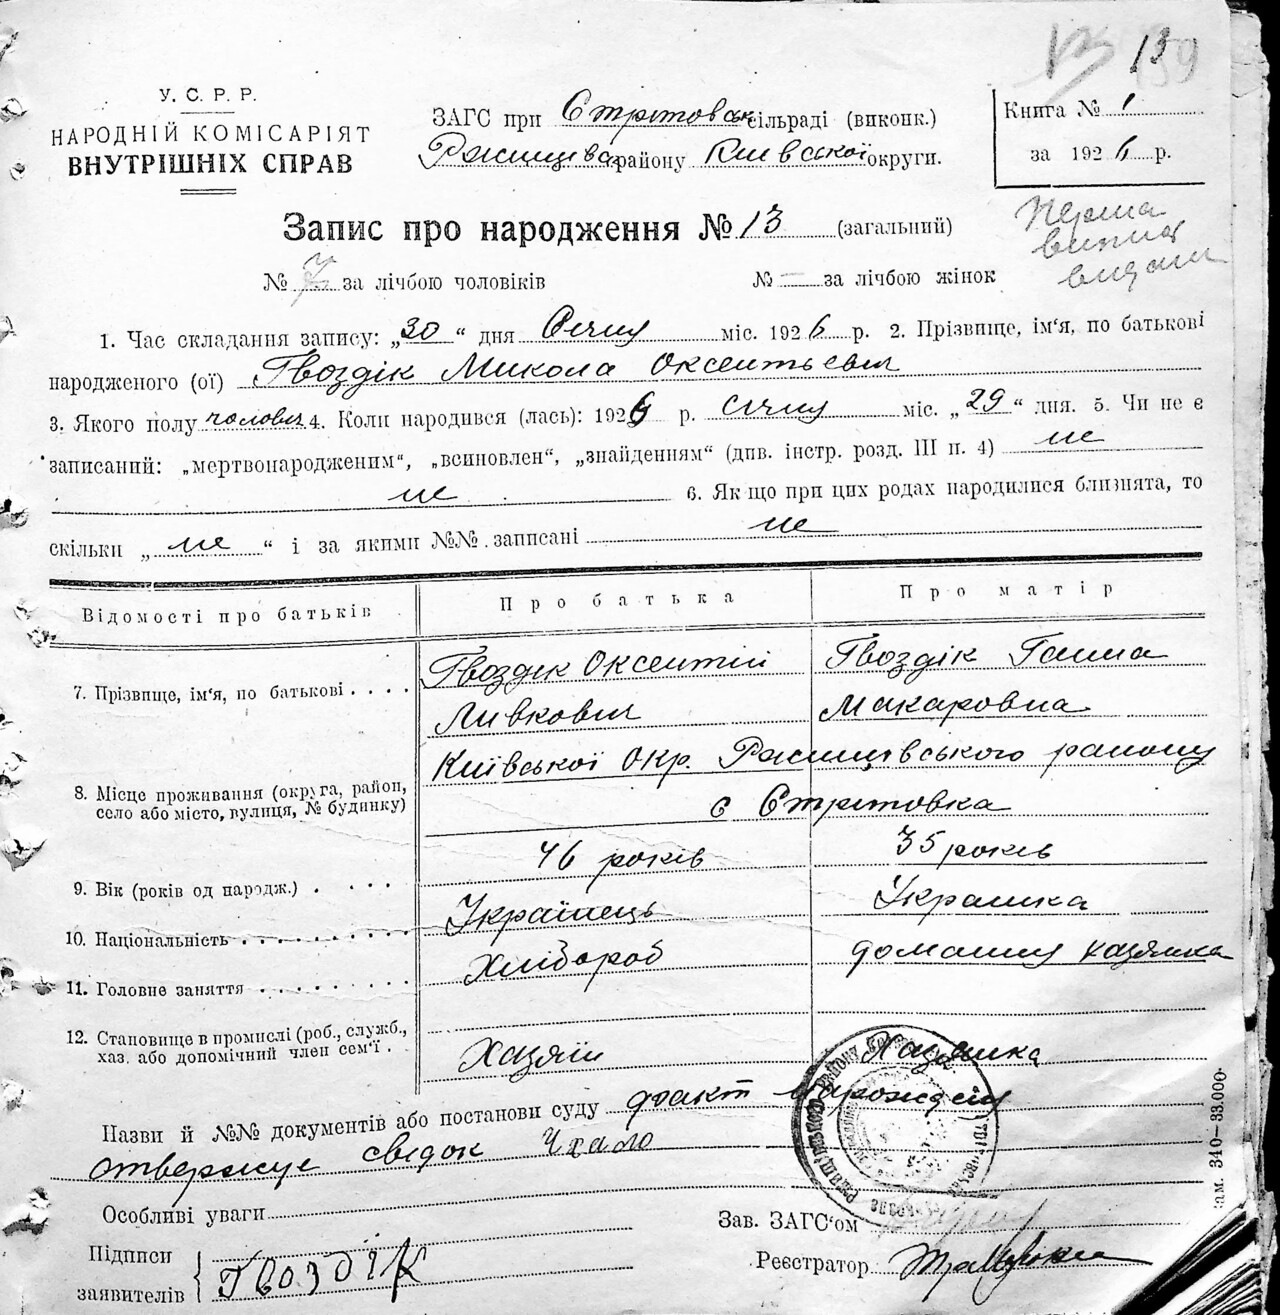 13 139
У. С. Р. Р.
НАРОДНІЙ КОМІСАРІЯТ
ВНУТРІШНІХ СПРАВ
ЗАГС при Стрітовськ сільраді (виконк.)
Ржищевс району Київської округи.
Книга № 1
за 1926 р.
Запис про народження № 13 (загальний)
Перша
випись
видана
№ 7 за лічбою чоловіків № — за лічбою жінок
1. Час складання запису: „30" дня Січня міс. 1926 р. 2. Прізвище, ім'я, по батькові
народженого (ої) Гвоздік Микола Оксентьевич
3. Якого полу чоловіч 4. Коли народився (лась): 1926 р. січня міс. „29" дня. 5. Чи не є
записаний: „мертвонародженим", „всиновлен", „знайденням" (див. інстр. розд. III п. 4) не
не 6. Як що при цих родах народилися близнята, то
скільки „не" і за якими №№ записані не
Відомості про батьків Про батька Про матір
7. Прізвище, ім'я, по батькові . . . . Гвоздик Оксентій Гвоздік Ганна
Явкович Макаровна
8. Місце проживання (округа, район, село або місто, вулиця, № будинку) Київської Окр. Ржищевського району
с Стритовка
9. Вік (років од народж.) . . . . 46 років 35 років
10. Національність . . . . . . . . . Українець Украинка
11. Головне заняття . . . . . . . . Хлібороб домашня хазяйка
12. Становище в промислі (роб., служб.,
хаз. або допомічний член сем'ї . . Хазяїн Хазяйка
Назви й №№ документів або постанови суду факт народження
отвержує свідок Чхало
Особливі уваги
Зав. ЗАГС'ом
Підписи
заявителів Гвоздік
Реєстратор
Зам. 340—33.000